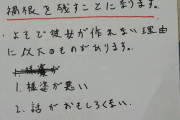 禍根を残すことになります。
・よそで彼女が作れない理由
に以下のものがあります。
1. 容姿が悪い
2. 話がおもしろくない.